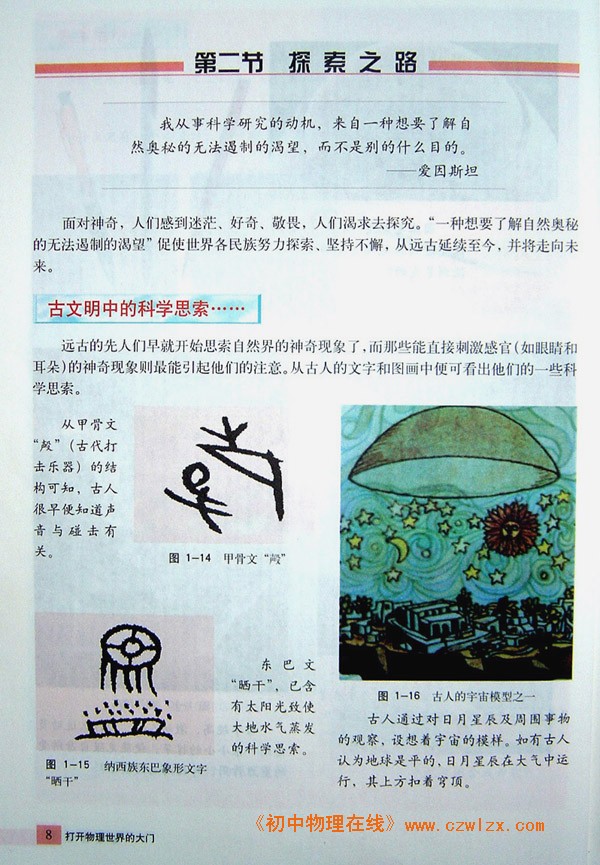 第二节 探索之路
我从事科学研究的动机，来自一种想要了解自
然奥秘的无法遏制的渴望，而不是别的什么目的。
——爱因斯坦
面对神奇，人们感到迷茫、好奇、敬畏，人们渴求去探究。“一种想要了解自然奥秘
的无法遏制的渴望”促使世界各民族努力探索、坚持不懈，从远古延续至今，并将走向未
来。
古文明中的科学思索……
远古的先人们早就开始思索自然界的神奇现象了，而那些能直接刺激感官（如眼睛和
耳朵）的神奇现象则最能引起他们的注意。从古人的文字和图画中便可看出他们的一些科
学思索。
从甲骨文
“殸”（古代打
击乐器）的结
构可知，古人
很早便知道声
音与碰击有
关。
图 1-14 甲骨文“殸”
东巴文
“晒干”，已含
有太阳光致使
大地水气蒸发
的科学思索。
图 1-15 纳西族东巴象形文字
“晒干”
图 1-16 古人的宇宙模型之一
古人通过对日月星辰及周围事物
的观察，设想着宇宙的模样。如有古人
认为地球是平的、日月星辰在大气中运
行，其上方扣着穹顶。
8 打开物理世界的大门
《初中物理在线》www.czwlzx.com